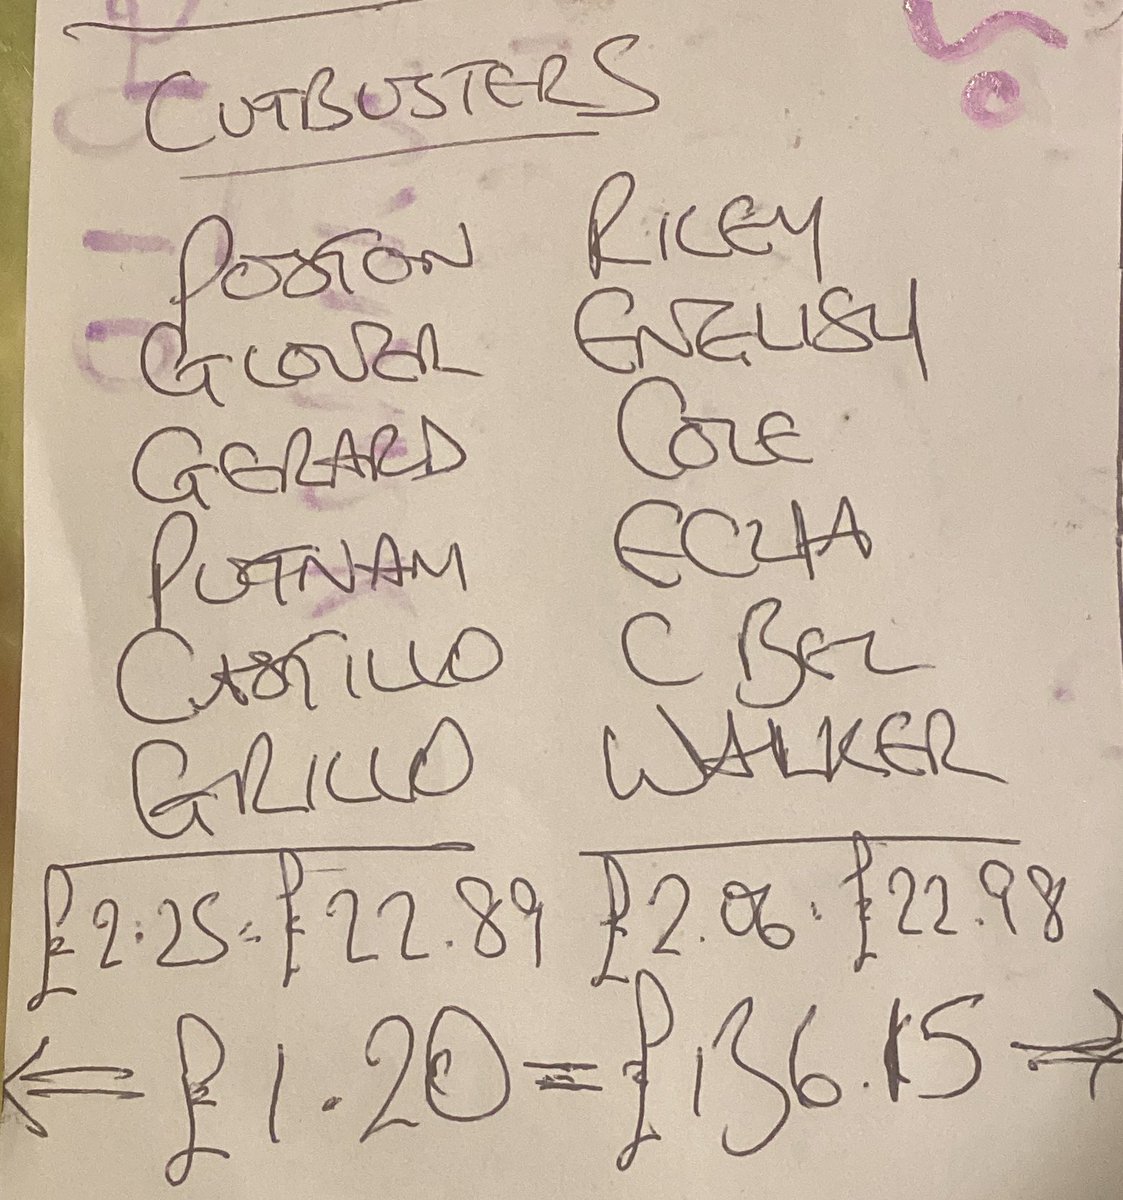 CUTBUSTERS
POSTON
GLOVER
GERARD
PUTNAM
CASTILLO
GRILLO
£2.25 = £22.89
RILEY
ENGLISH
COLE
C BEZ
WALKER
£2.06 = £22.98
£1.20 = £136.15